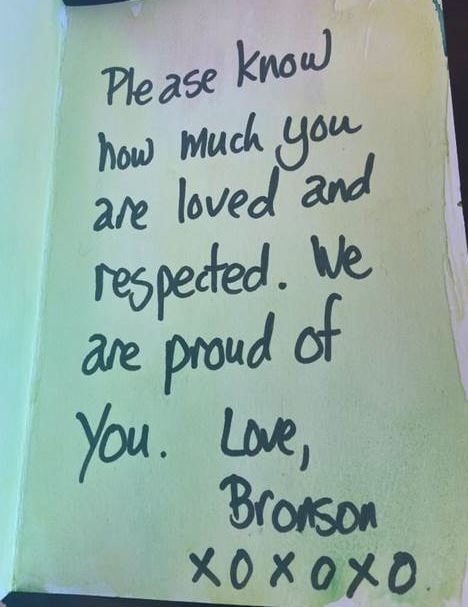 Please know
how much you
are loved and
respected. We
are proud of
You. Love,
Bronson
xoxoxo